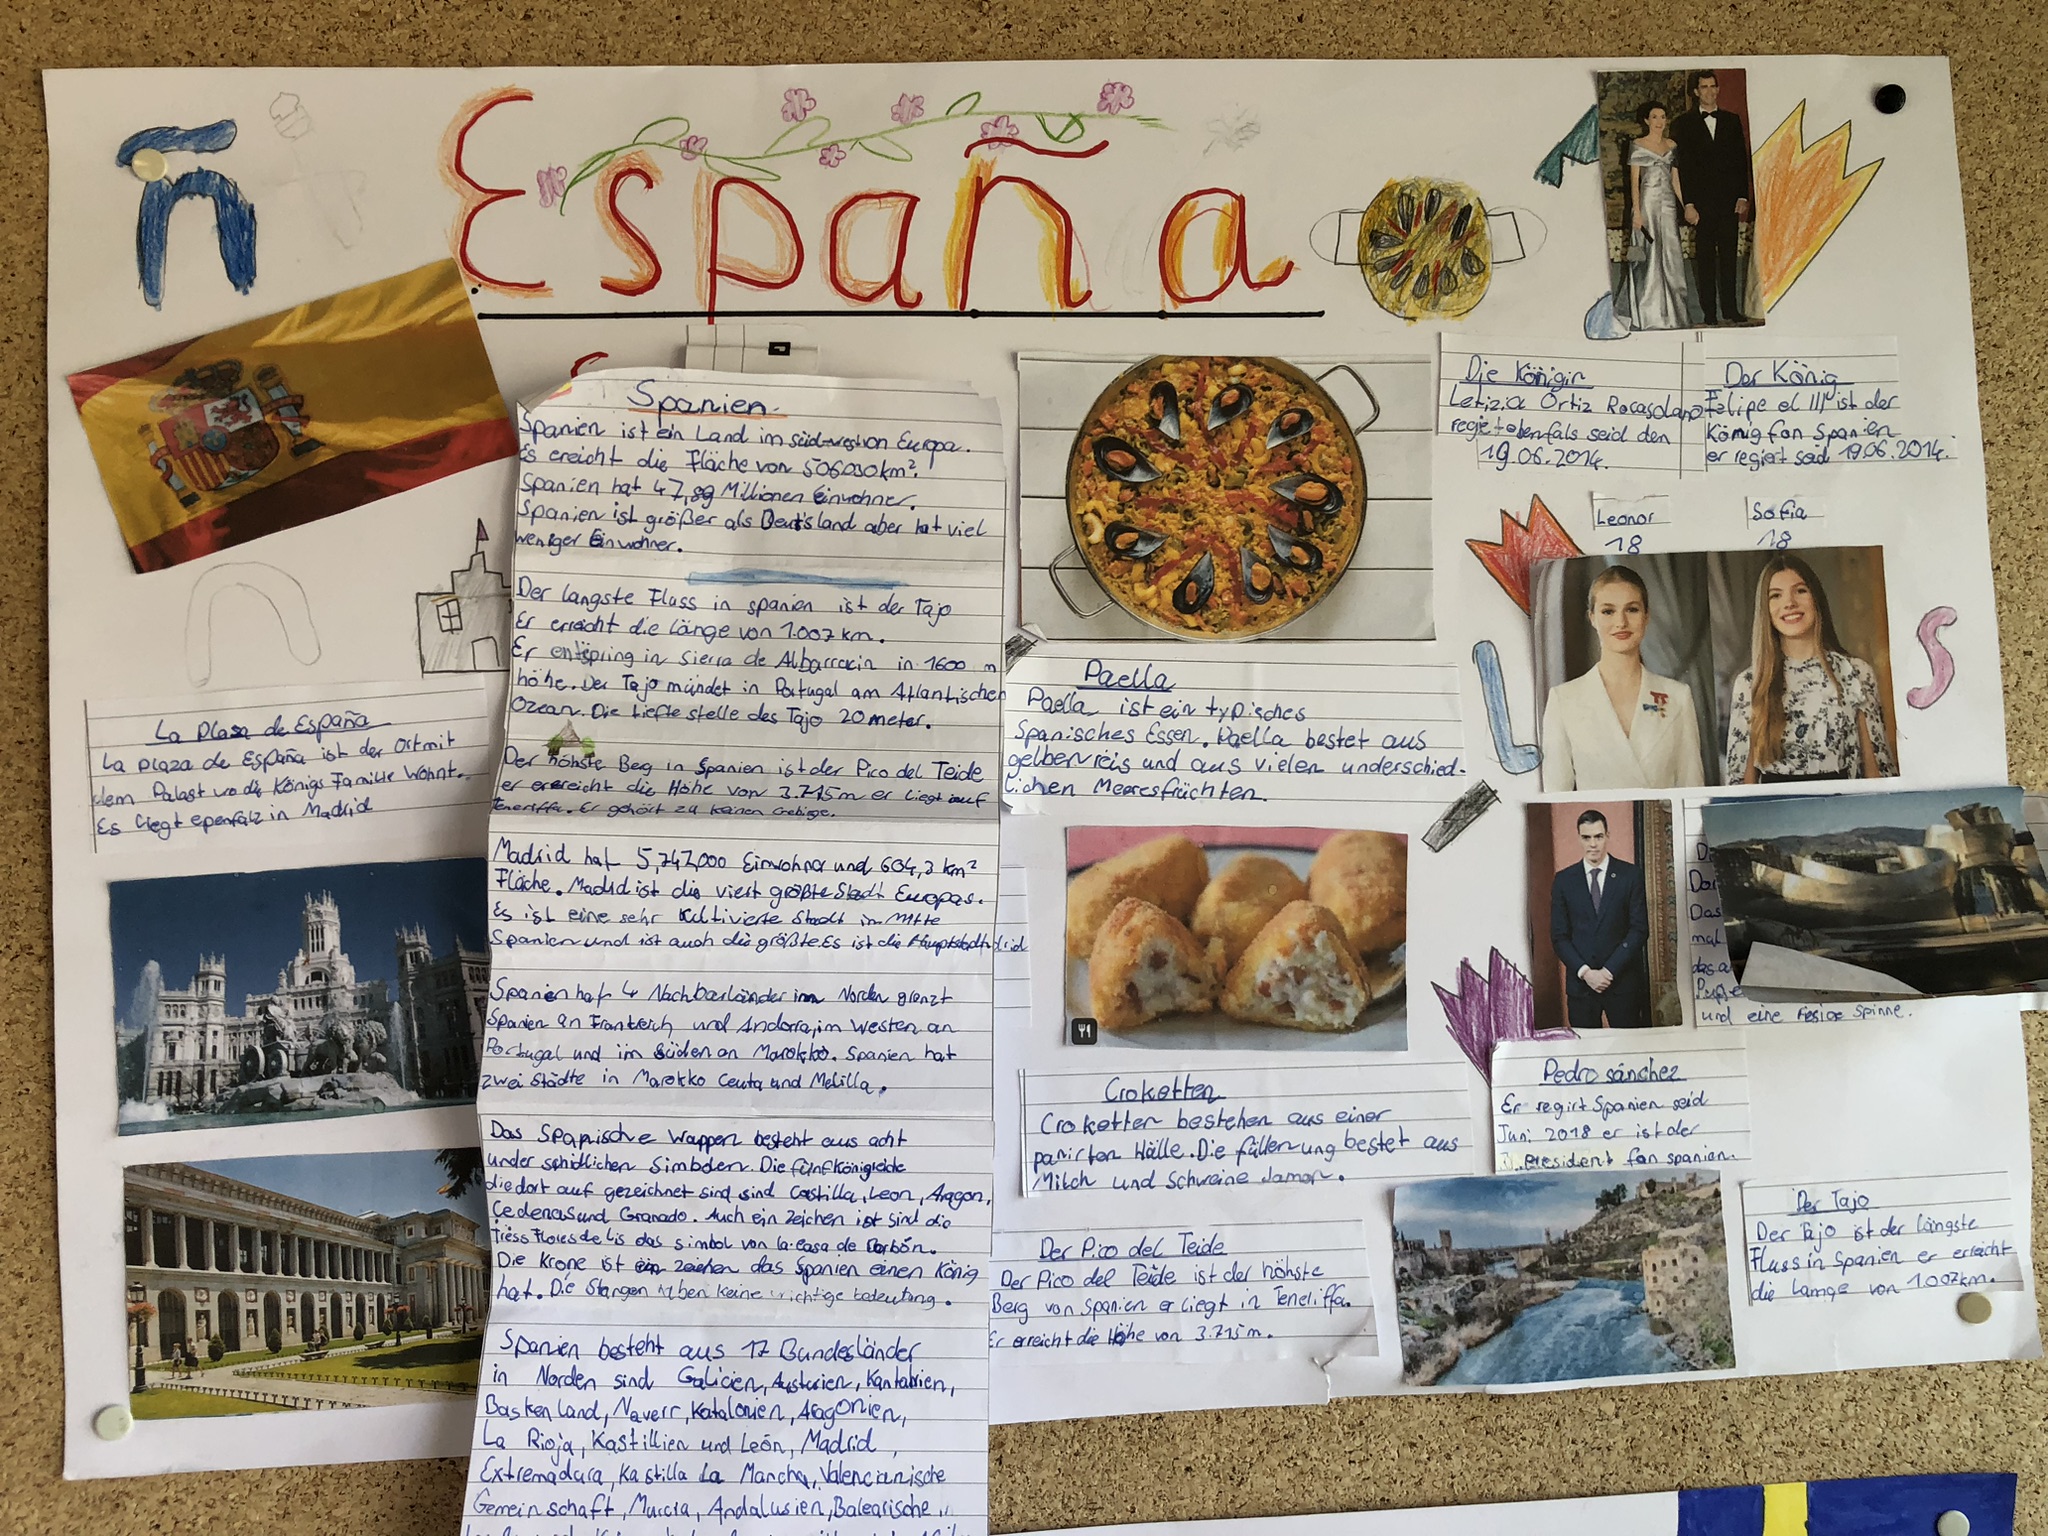 ñ
España
Spanien
Spanien ist ein Land im süd-westen Europa.
Es ereicht die Fläche von 506030 km².
Spanien hat 47,89 Millionen Einwohner.
Spanien ist größer als Deutsland aber hat viel
weniger Einwohner.
Der langste Fluss in spanien ist der Tajo
Er erreicht die länge von 1.007 km.
Er entspring in Sierra de Albarracin in 1600 m
höhe. Der Tajo mündet in Portugal am Atlantischen
Ozean. Die tiefte stelle des Tajo 20 meter.
Der höhste Beg in Spanien ist der Pico del Teide
er erreicht die Höhe von 3.715 m er liegt auf
Teneriffa. Er gehört zu keinen Gebirge.
Madrid hat 5,747,000 Einwohner und 604,3 km²
Fläche. Madrid ist die viert größte Stadt Europas.
Es ist eine sehr kultivierte Stadt in Mitte
Spanien und ist auch die größte. Es ist die Hauptstadt
Spanien hat 4 Nachbarländer im Norden grenzt
Spanien an Frankreich und Andorra, im westen an
Portugal und im Süden an Marokko. Spanien hat
zwei Städte in Marokko Ceuta und Melilla.
Das Spanische Wappen besteht aus acht
underschidlichen Simbolen. Die fünf Königreiche
die dort auf gezeichnet sind sind Castilla, Leon, Aragon,
und Granado. Auch ein Zeichen ist sind die
Flores de lis das simbol von la casa de Borbón.
Die Krone ist ein zeichen das Spanien einen König
hat. Die Stangen haben keine wichtige bedeutung.
Spanien besteht aus 17 Bundesländer
in Norden sind Galicien, Asturien, Kantabrien,
Baskenland, Naverr, Katalonien, Aragonien,
La Rioja, Kastillien und León, Madrid,
Extremadura, Kastilla La Mancha, Valencianische
Gemeinschaft, Murcia, Andalusien, Balearische
La Plaza de España
La Plaza de España ist der Ort mit
dem Palast wo die Königs Familie Wohnt.
Es liegt epenfalz in Madrid
Paella
Paella ist ein typisches
Spanisches Essen. Paella bestet aus
gelben reis und aus vielen underschied-
lichen Meeresfrüchten.
Croketten
Croketten bestehen aus einer
panirten Hälle. Die füllenung bestet aus
Milch und Schweine Jamon.
Der Pico del Teide
Der Pico del Teide ist der höhste
Berg von Spanien er liegt in Teneliffa.
Er erreicht die Höhe von 3.715 m.
Die Königin
Letizia Ortiz Rocasolano
regiet ebenfals seid den
19.06.2014.
Der König
Felipe el III ist der
König fon Spanien
er regiert seid 19.06.2014.
Leonor
18
Sofia
18
L
S
und eine riesige spinne.
Pedro sánchez
Er regirt Spanien seid
Juni 2018 er ist der
President fon spanien.
Der Tajo
Der Tajo ist der längste
Fluss in Spanien er erreicht
die lamge von 1.007km.